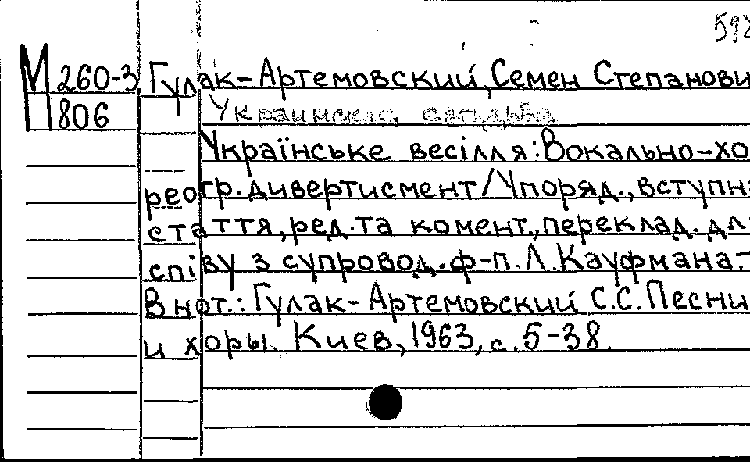 592
М 260-3 Гулак-Артемовский, Семен Степанови
П 806 Украинская свадьба
Українське весілля: Вокально-хо
реогр. дивертисмент/Упоряд., вступн
стаття, ред. та комент., переклад. дл
співу з супровод. ф-п. Л. Кауфмана.-
В нот.: Гулак-Артемовский С.С. Песни
и хоры. Киев, 1963, с. 5-38.